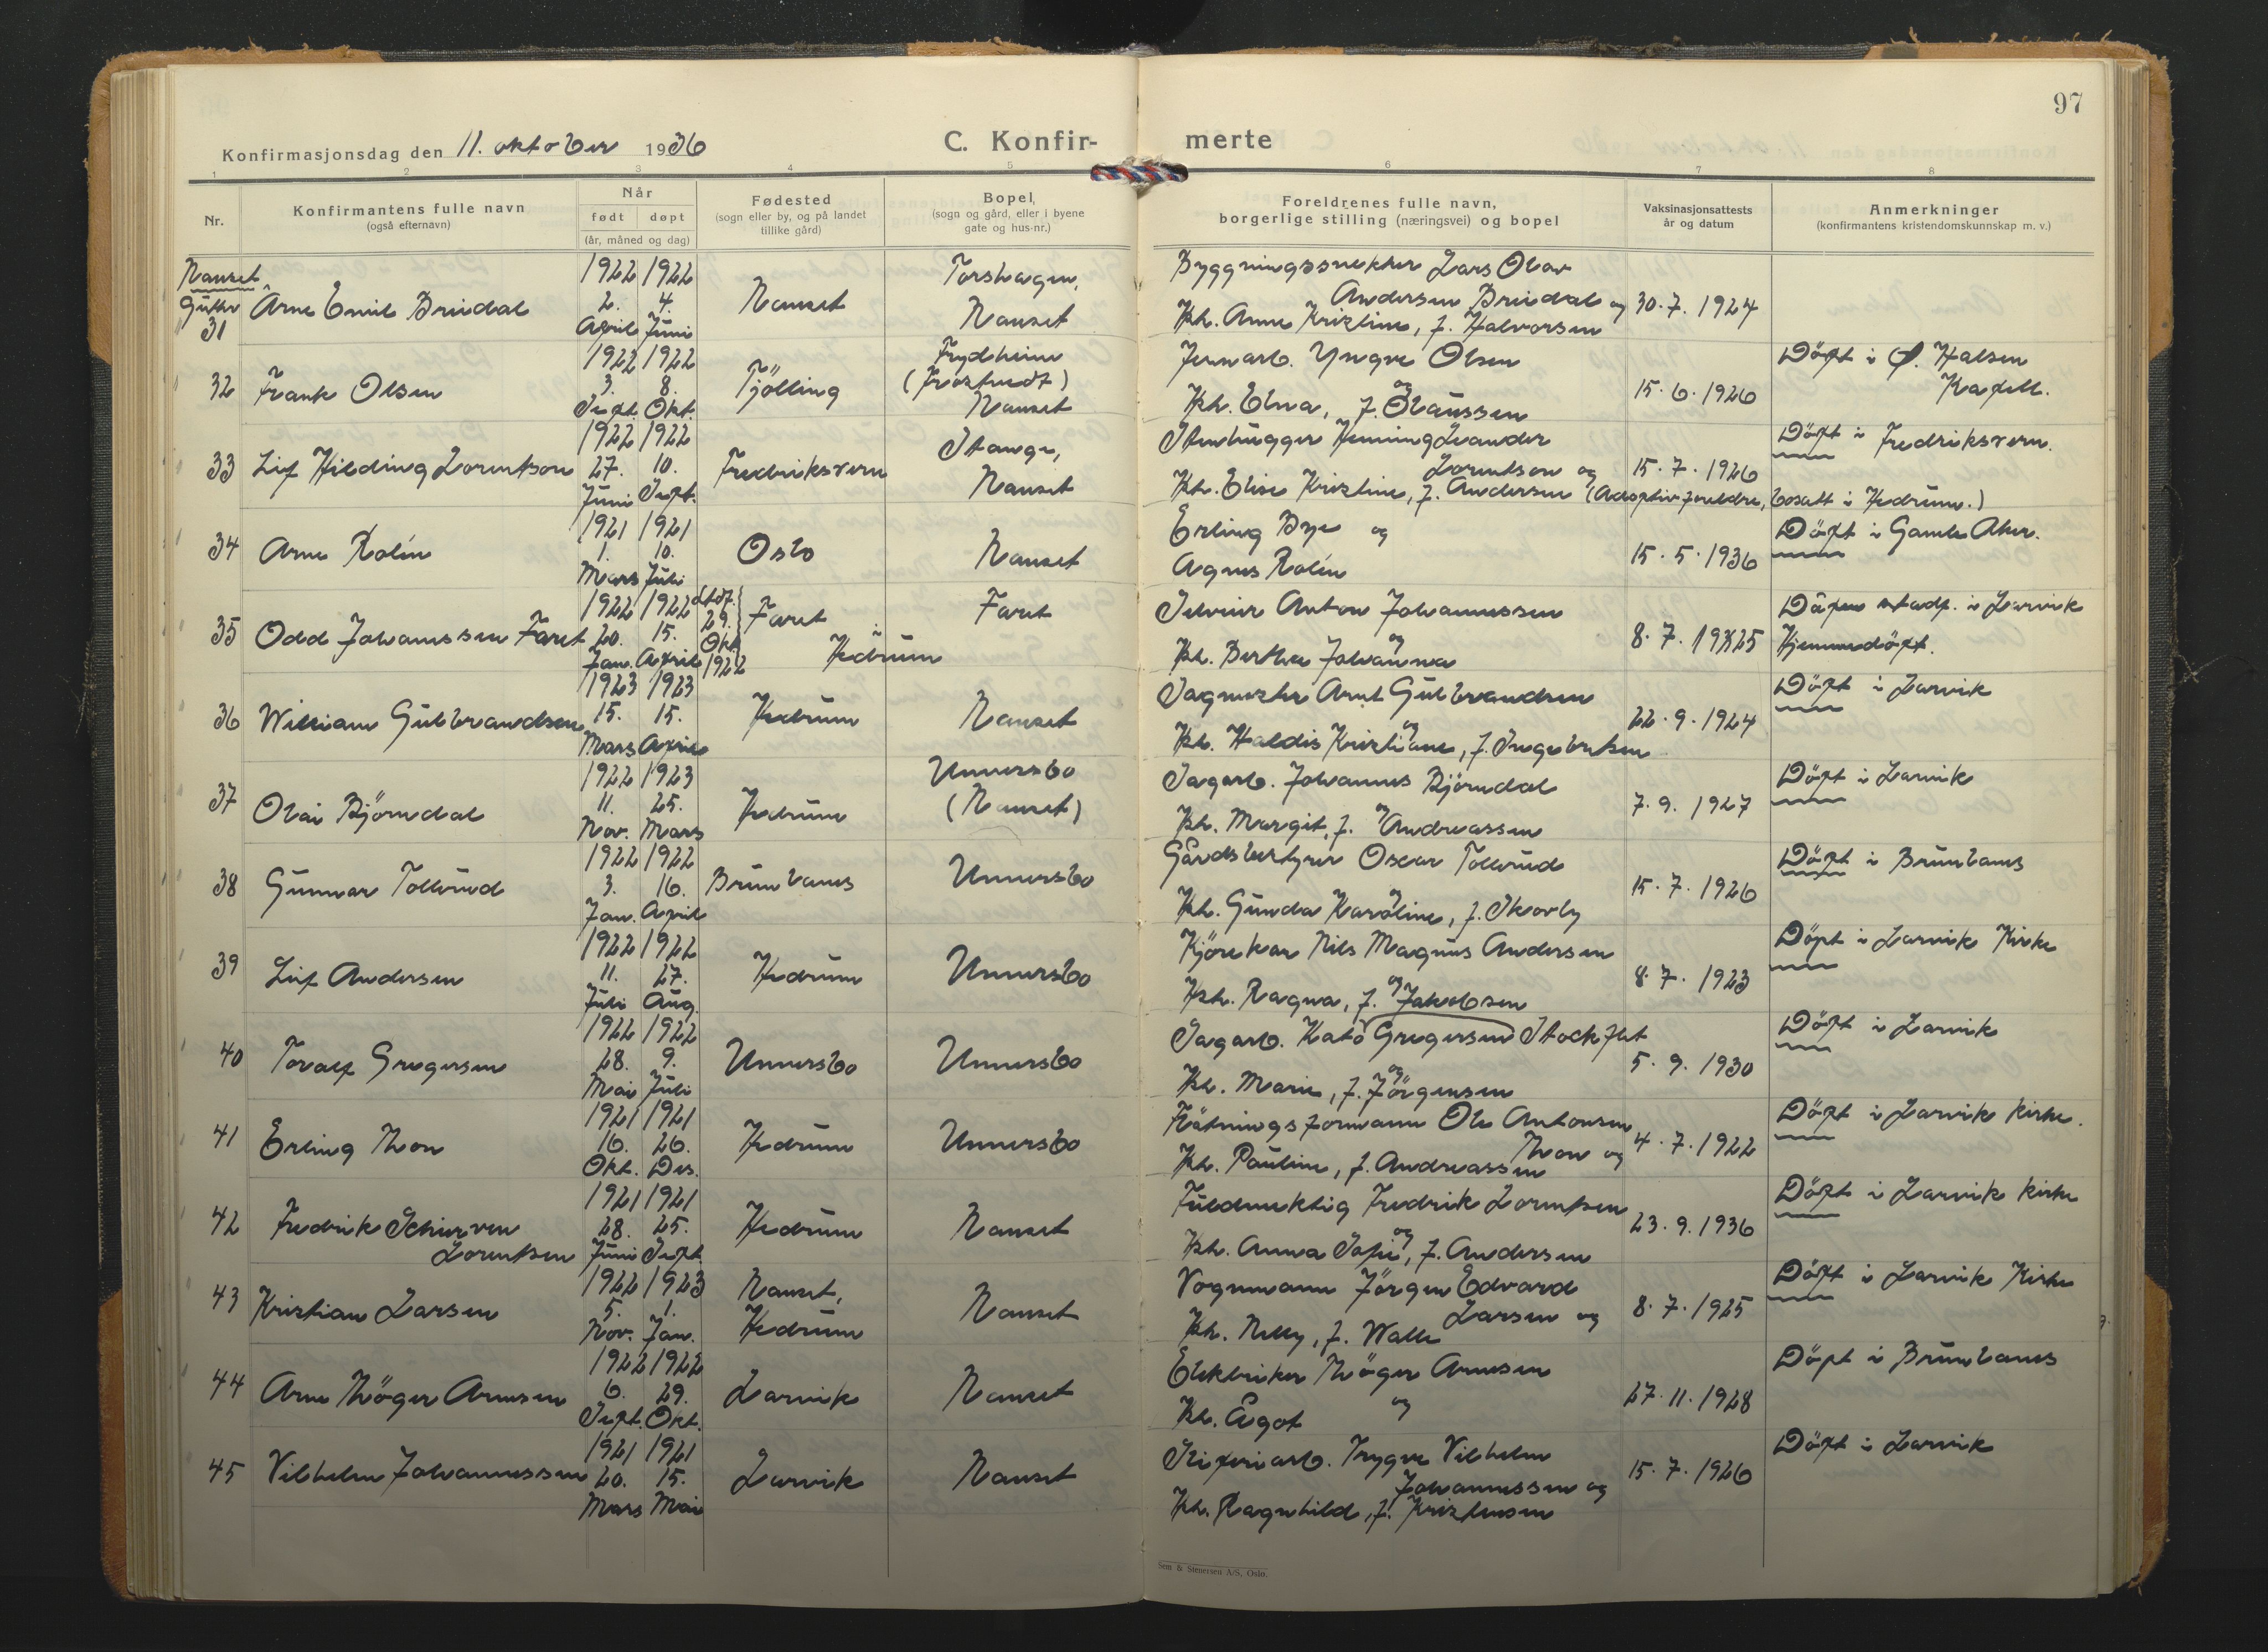 97
Konfirmasjonsdag den 11. oktober 1936
C. Konfir- merte
1 2 3 4 5 6 7 8
Nr. Konfirmantens fulle navn (også efternavn) Når født døpt (år, måned og dag) Fødested (sogn eller by, og på landet tillike gård) Bopel, (sogn og gård, eller i byene gate og hus-nr.) Foreldrenes fulle navn, borgerlige stilling (næringsvei) og bopel Vaksinasjonsattests år og datum Anmerkninger (konfirmantens kristendomskunnskap m. v.)
Nanset
Gutter
31 Arne Emil Breidal 1922 2. April 1922 4. Juni Nanset Torshagen, Nanset Byggningssnekker Lars Olav Andersen Breidal og Kh. Anne Kristine, f. Halvorsen 30.7.1924
32 Frank Olsen 1922 3. Sept. 1922 8. Okt. Tjölling Frydheim (Fristredt) Nanset Jernarb. Yngve Olsen og Kh. Elna, f. Olaussen 15.6.1926 Döpt i Ø. Halsen Kapell.
33 Leif Hilding Lorentson 1922 27. Juni 1922 10. Sept. Fredriksvern Stange, Nanset Stenhugger Henning Leander Lorentson og Kh. Elise Kristine, f. Andersen (Adoptivforeldre, bosatt i Hedrum.) 15.7.1926 Döpt i Fredriksvern.
34 Arne Rolin 1921 1. Mars 1921 10. Juli Oslo Nanset Erling Bye og Agnes Rolin 15.5.1936 Döpt i Gamle Aker.
35 Odd Johanssen Faret 1922 20. Jan. 1922 15. April stadf. 29. Okt. 1922 Faret i Hedrum Faret Selveier Anton Johannessen og Kh. Berthe Johanna 8.7.1925 Dåpen stadf. i Larvik Hjemmedöpt.
36 William Gulbrandsen 1923 15. Mars 1923 15. April Hedrum Nanset Sagmester Arnt Gulbrandsen og Kh. Haldis Kristiane, f. Ingebretsen 22.9.1924 Döpt i Larvik
37 Olai Björndal 1922 11. Nov. 1923 25. Mars Hedrum Unnersbo (Nanset) Sagarb. Johannes Björndal og Kh. Margit, f. Andreassen 7.9.1927 Döpt i Larvik
38 Gunnar Tollerud 1922 3. Jan. 1922 16. April Brunlanes Unnersbo Gårdsbestyrer Oscar Tollerud og Kh. Gunda Karoline, f. Skovly 15.7.1926 Döpt i Brunlanes
39 Leif Andersen 1922 11. Juli 1922 27. Aug. Hedrum Unnersbo Kjörekar Nils Magnus Andersen og Kh. Ragna, f. Jakobsen 8.7.1923 Döpt i Larvik Kirke
40 Toralf Gregersen 1922 28. Mai 1922 9. Juli Unnersbo Unnersbo Sagarb. Kato Gregersen Stockflet og Kh. Marie, f. Jörgensen 5.9.1930 Döpt i Larvik
41 Erling Thon 1921 16. Okt. 1921 26. Des. Hedrum Unnersbo Flåtningsformann Ole Antonsen Thon og Kh. Pauline, f. Andreassen 4.7.1922 Döpt i Larvik kirke.
42 Fredrik Schierven Lorentsen 1921 28. Juni 1921 25. Sept. Hedrum Nanset Fuldmektig Fredrik Lorentsen og Kh. Anna Sofie, f. Andersen 23.9.1936 Döpt i Larvik kirke
43 Kristian Larsen 1922 5. Nov. 1923 1. Jan. Nanset, Hedrum Nanset Vognmann Jörgen Edvard Larsen og Kh. Nelly, f. Walle 8.7.1925 Döpt i Larvik Kirke
44 Arne Thöger Arnesen 1922 6. Sept. 1922 29. Okt. Larvik Nanset Elektriker Thöger Arnesen og Kh. Aagot 27.11.1928 Döpt i Brunlanes
45 Vilhelm Johannessen 1921 20. Mars 1921 15. Mai Larvik Nanset Sliperiarb. Trygve Vilhelm Johannessen og Kh. Ragnhild, f. Kristensen 15.7.1926 Döpt i Larvik
Sem & Stenersen A/S, Oslo.